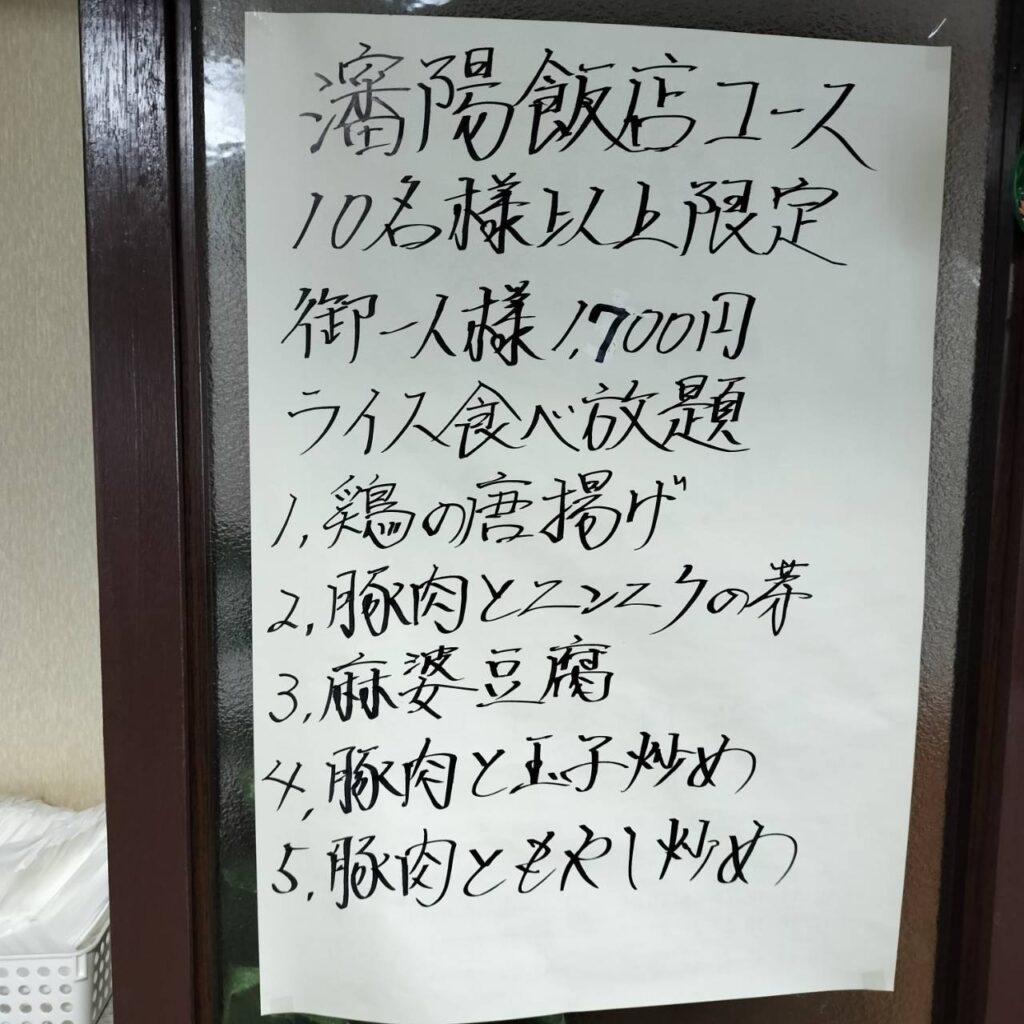 瀋陽飯店コース
10名様以上限定
御一人様1,700円
ライス食べ放題
1,鶏の唐揚げ
2,豚肉とニンニクの芽
3,麻婆豆腐
4,豚肉と玉子炒め
5,豚肉ともやし炒め